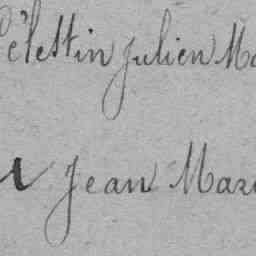 Célestin Julien Ma
Jean Mari